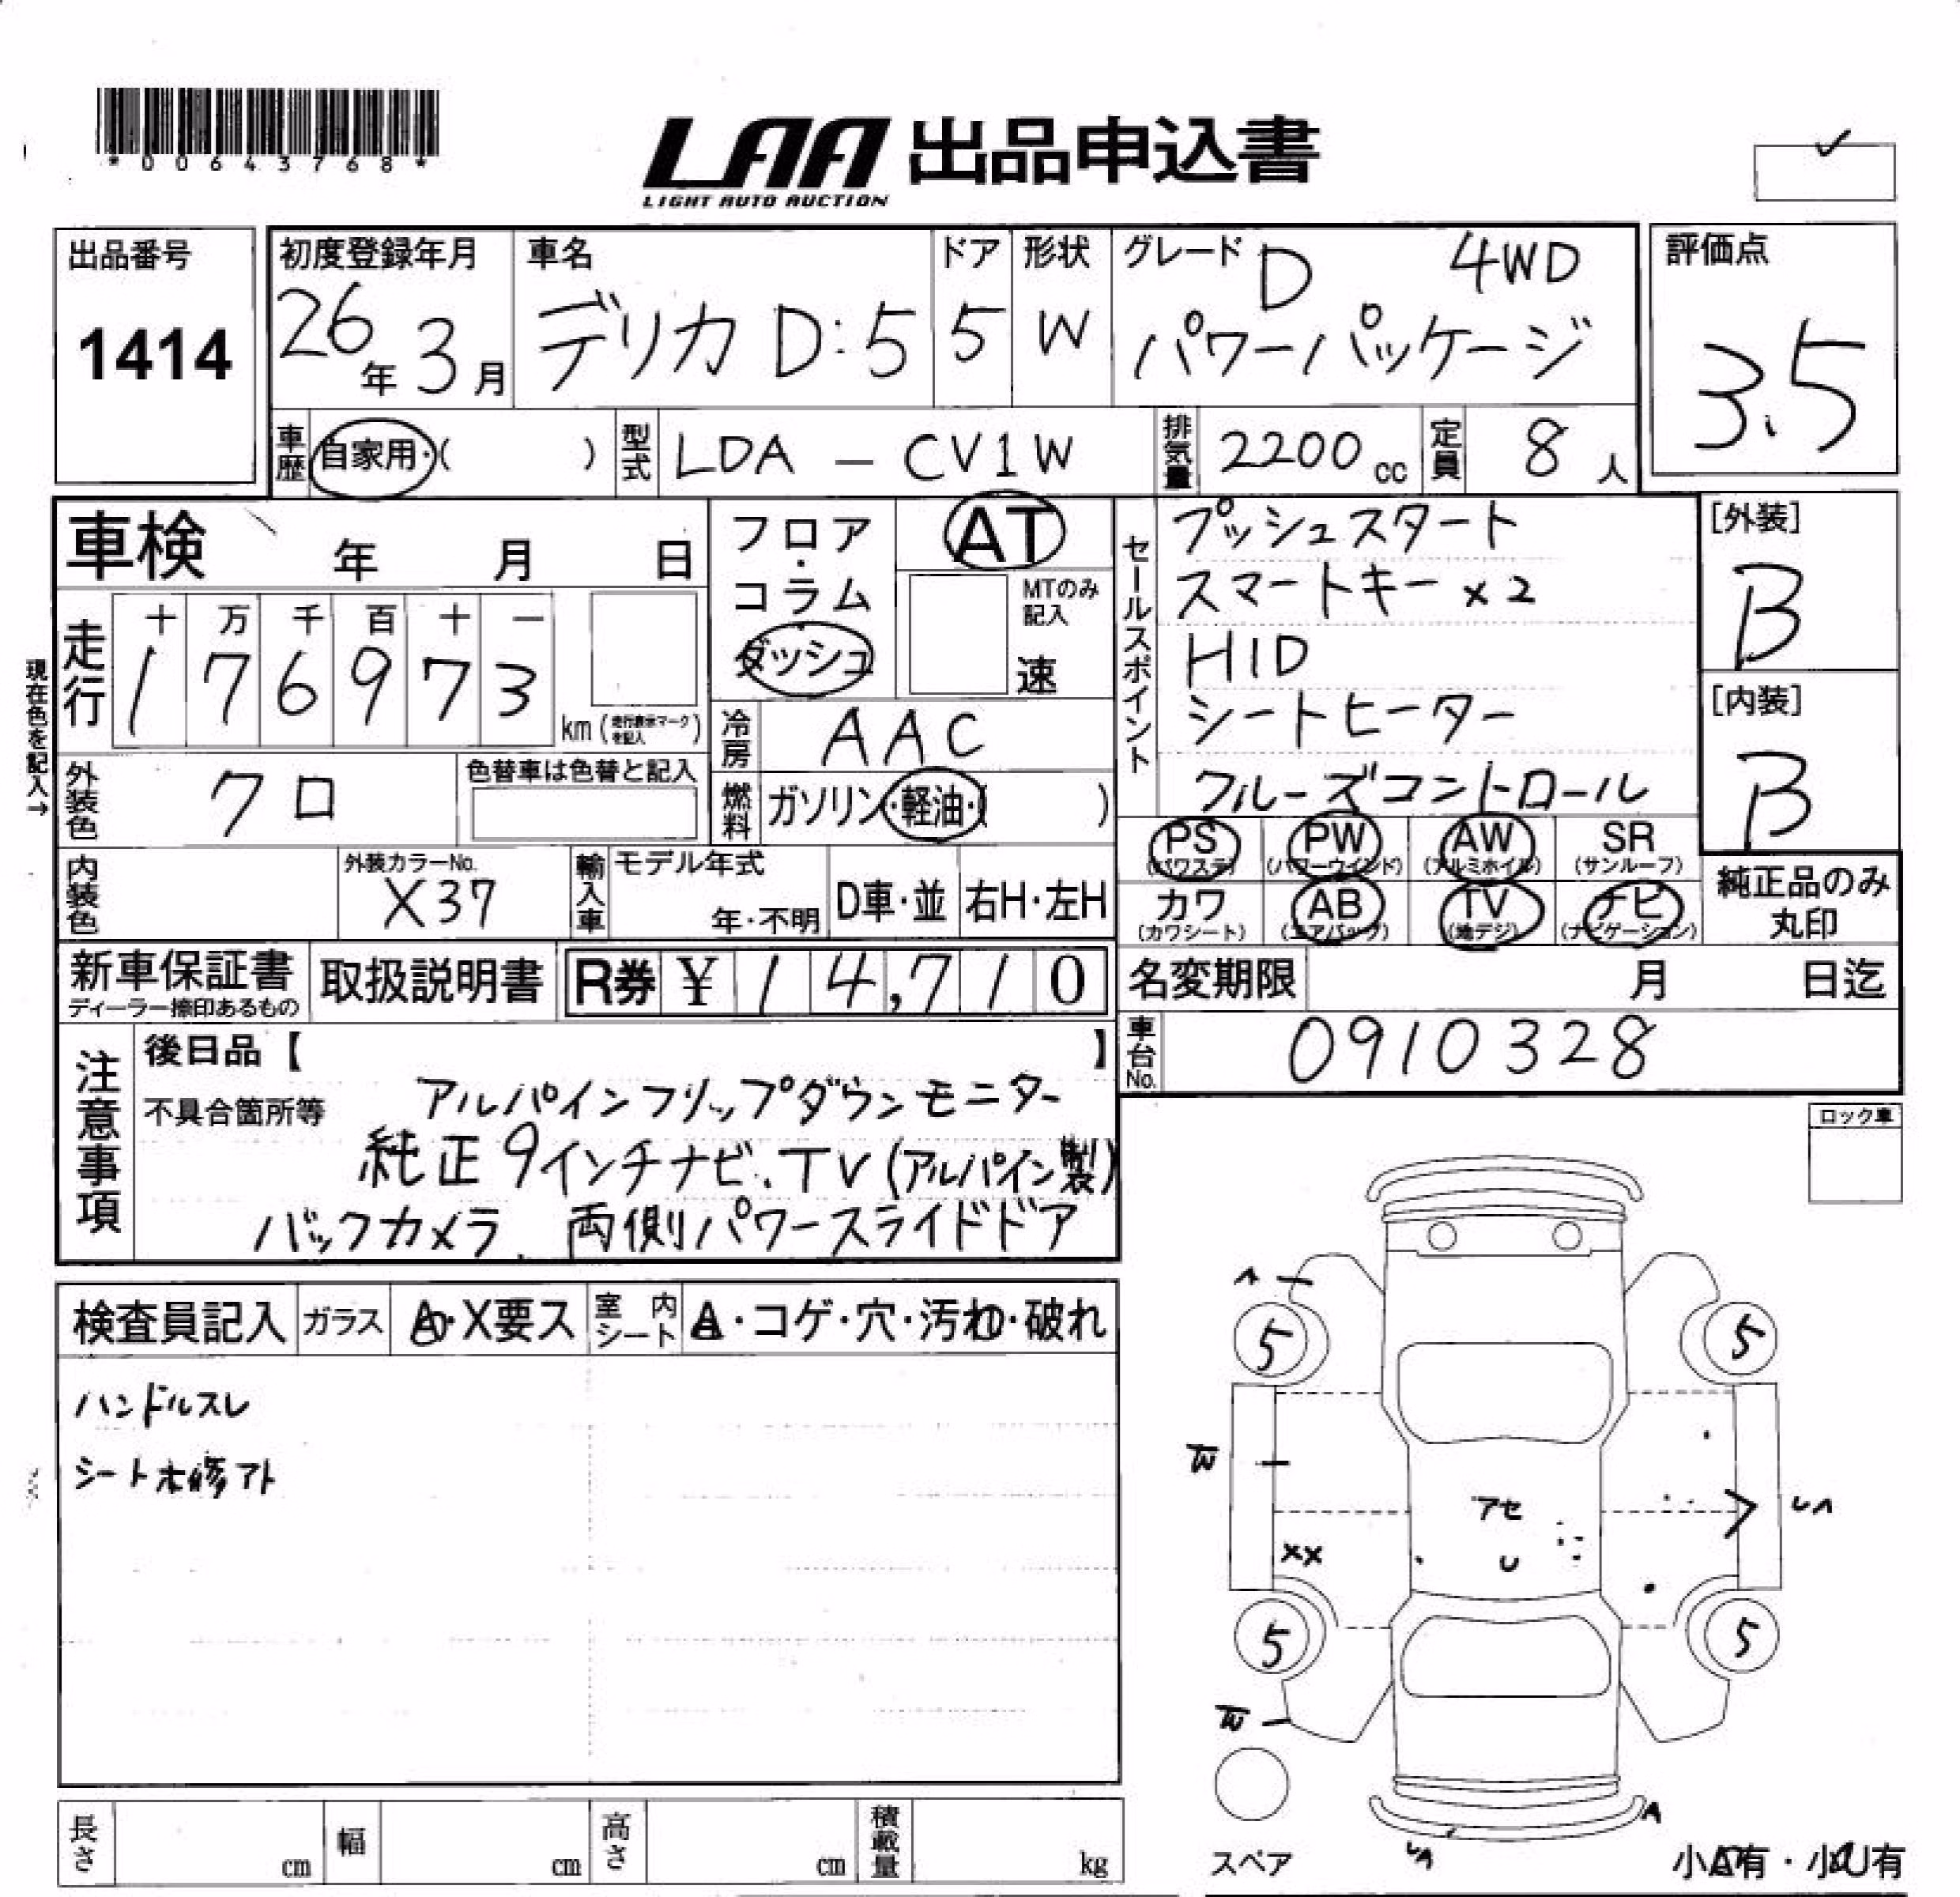 *00643768*
LAA 出品申込書
LIGHT AUTO AUCTION
出品番号
1414
初度登録年月
26年3月
車名
デリカ D:5
ドア
5
形状
W
グレード
D 4WD
パワーパッケージ
評価点
3.5
車歴 自家用・( )
型式 LDA — CV1W
排気量 2200cc
定員 8人
車検 年 月 日
現在色を記入→
走行
十 万 千 百 十 一
1 7 6 9 7 3
km(走行表示マークを記入)
フロア・コラム
ダッシュ
AT
MTのみ記入
速
冷房 AAC
燃料 ガソリン・軽油・( )
セールスポイント
プッシュスタート
スマートキー×2
HID
シートヒーター
クルーズコントロール
[外装]
B
[内装]
B
外装色 クロ
色替車は色替と記入
内装色
外装カラーNo.
X37
輸入車
モデル年式
年・不明
D車・並
右H・左H
PS PW AW SR
(パワステ) (パワーウインド) (アルミホイル) (サンルーフ)
カワ AB TV ナビ
(カワシート) (エアバック) (地デジ) (ナビゲーション)
純正品のみ
丸印
新車保証書
ディーラー捺印あるもの
取扱説明書
R券 ¥ 1 4,7 1 0
名変期限 月 日迄
車台No. 0910328
注意事項
後日品【 】
不具合箇所等
アルパインフリップダウンモニター
純正9インチナビ、TV(アルパイン製)
バックカメラ、両側パワースライドドア
ロック車
検査員記入
ガラス A・X要ス
室内シート A・コゲ・穴・汚れ・破れ
ハンドルスレ
シート
5
5
W
アセ
U
××
5
5
W
A
スペア
小A有・小U有
長さ cm
幅 cm
高さ cm
積載量 kg